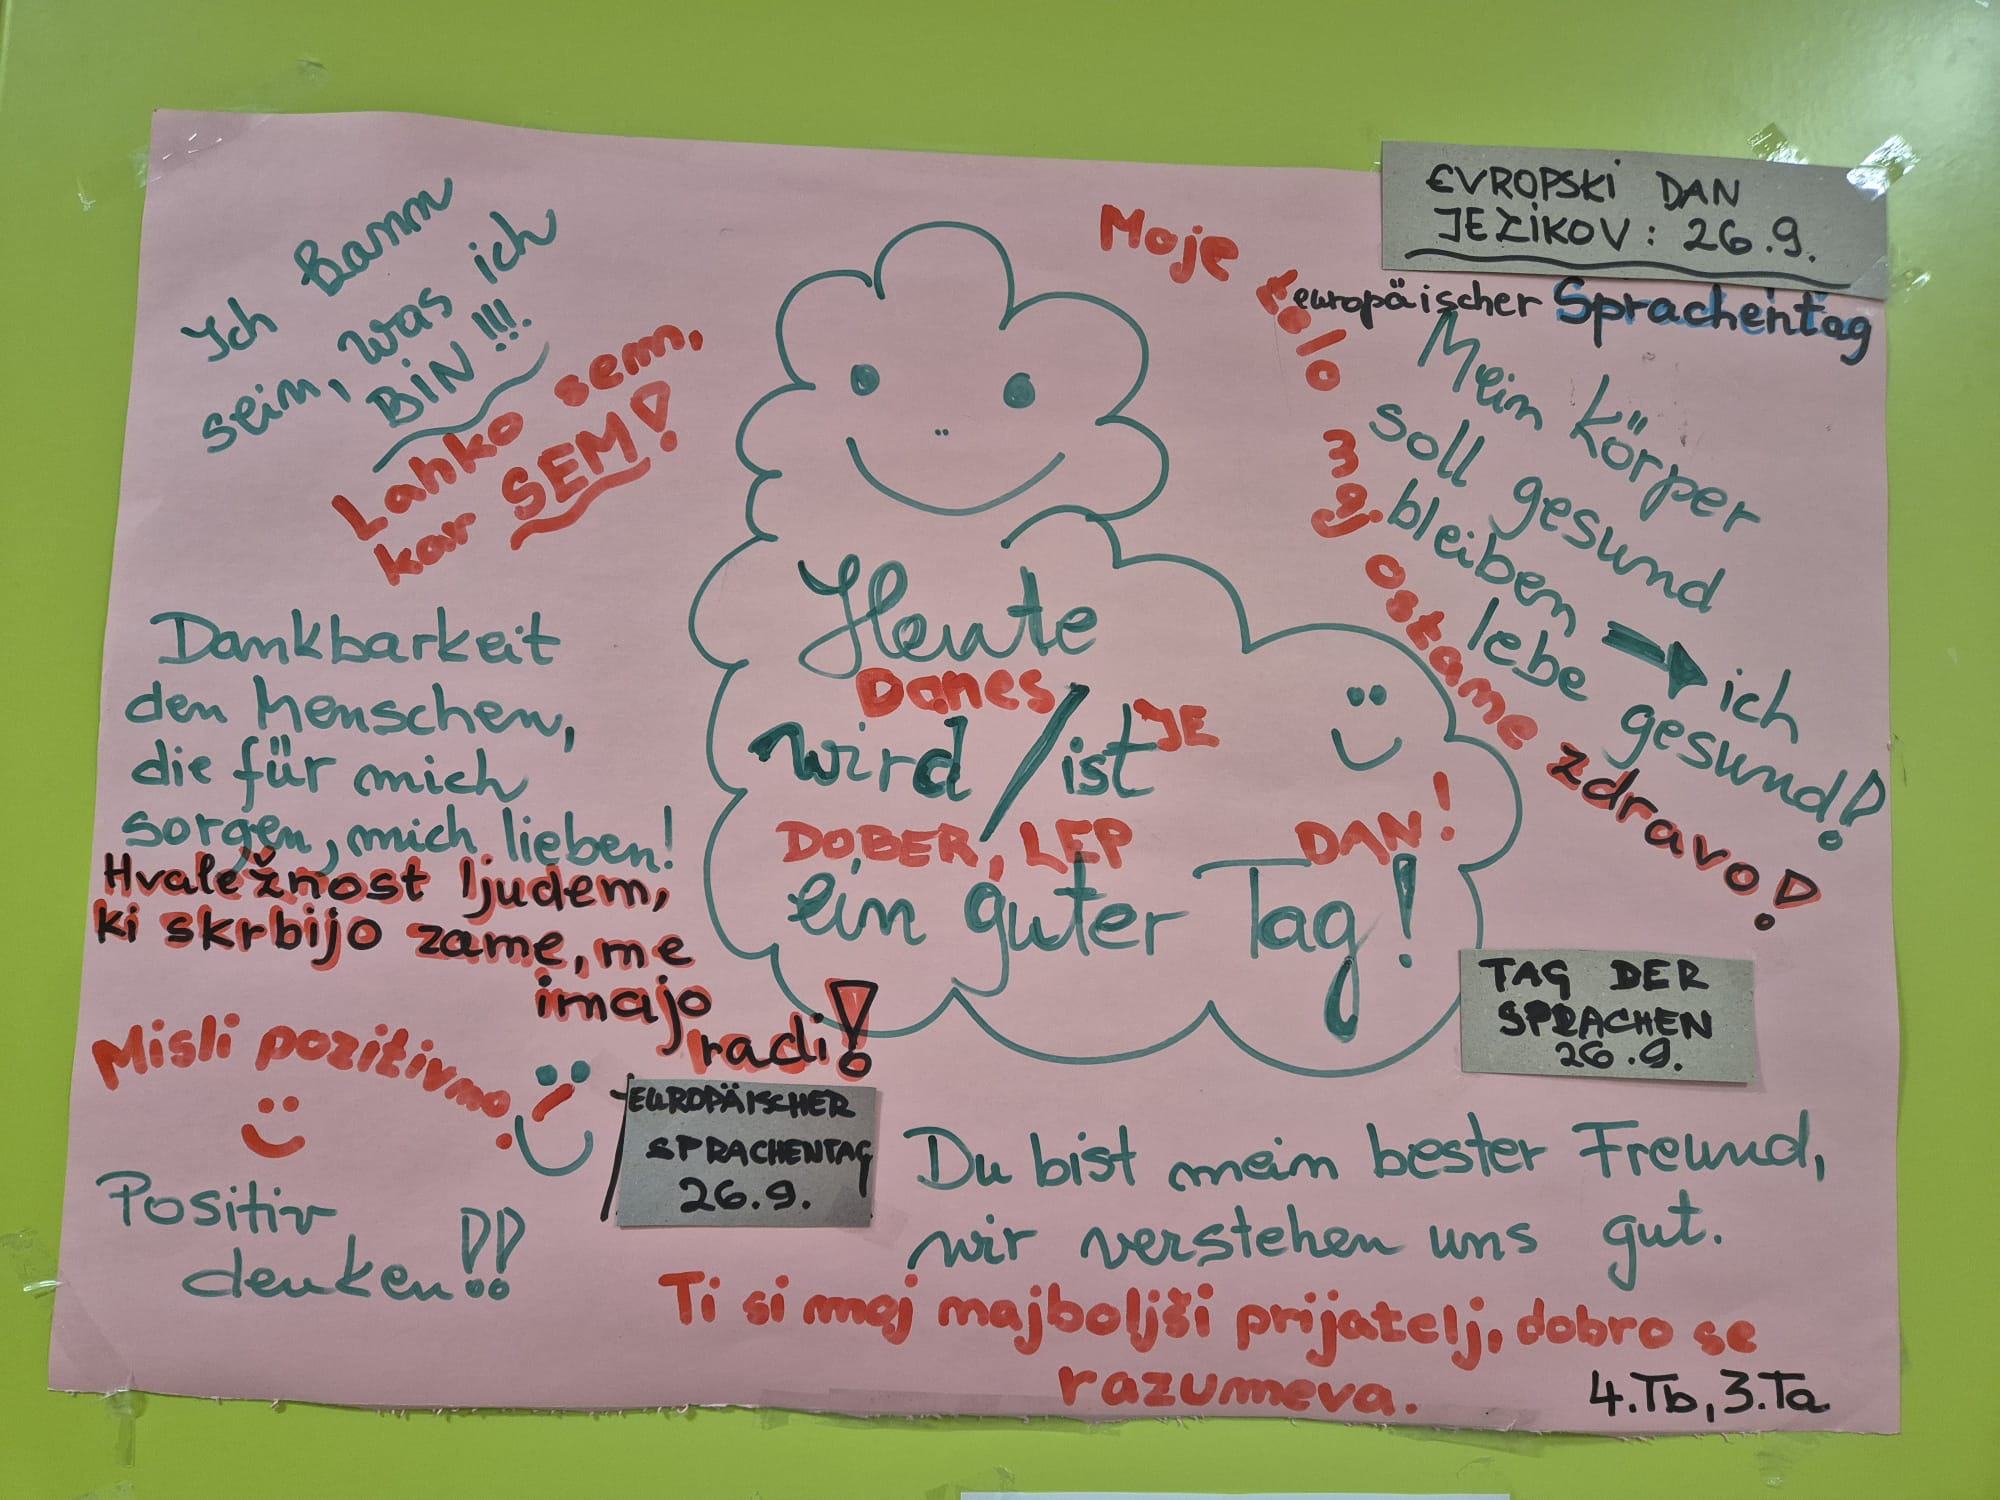 EVROPSKI DAN
JEZIKOV: 26.9.
europäischer Sprachentag
Ich kann
sein, was ich
BIN!!!
Lahko sem,
kar SEM!
Moje telo naj ostane zdravo!
Mein Körper
soll gesund
bleiben → ich
lebe gesund!
Heute
Danes
wird/ist JE
DOBER, LEP DAN!
ein guter Tag!
Dankbarkeit
den Menschen,
die für mich
sorgen, mich lieben!
Hvaležnost ljudem,
ki skrbijo zame, me
imajo
radi!
Misli pozitivno!
Positiv
denken!!
EUROPÄISCHER
SPRACHENTAG
26.9.
TAG DER
SPRACHEN
26.9.
Du bist mein bester Freund,
wir verstehen uns gut.
Ti si moj najboljši prijatelj, dobro se
razumeva.
4.Tb, 3.Ta